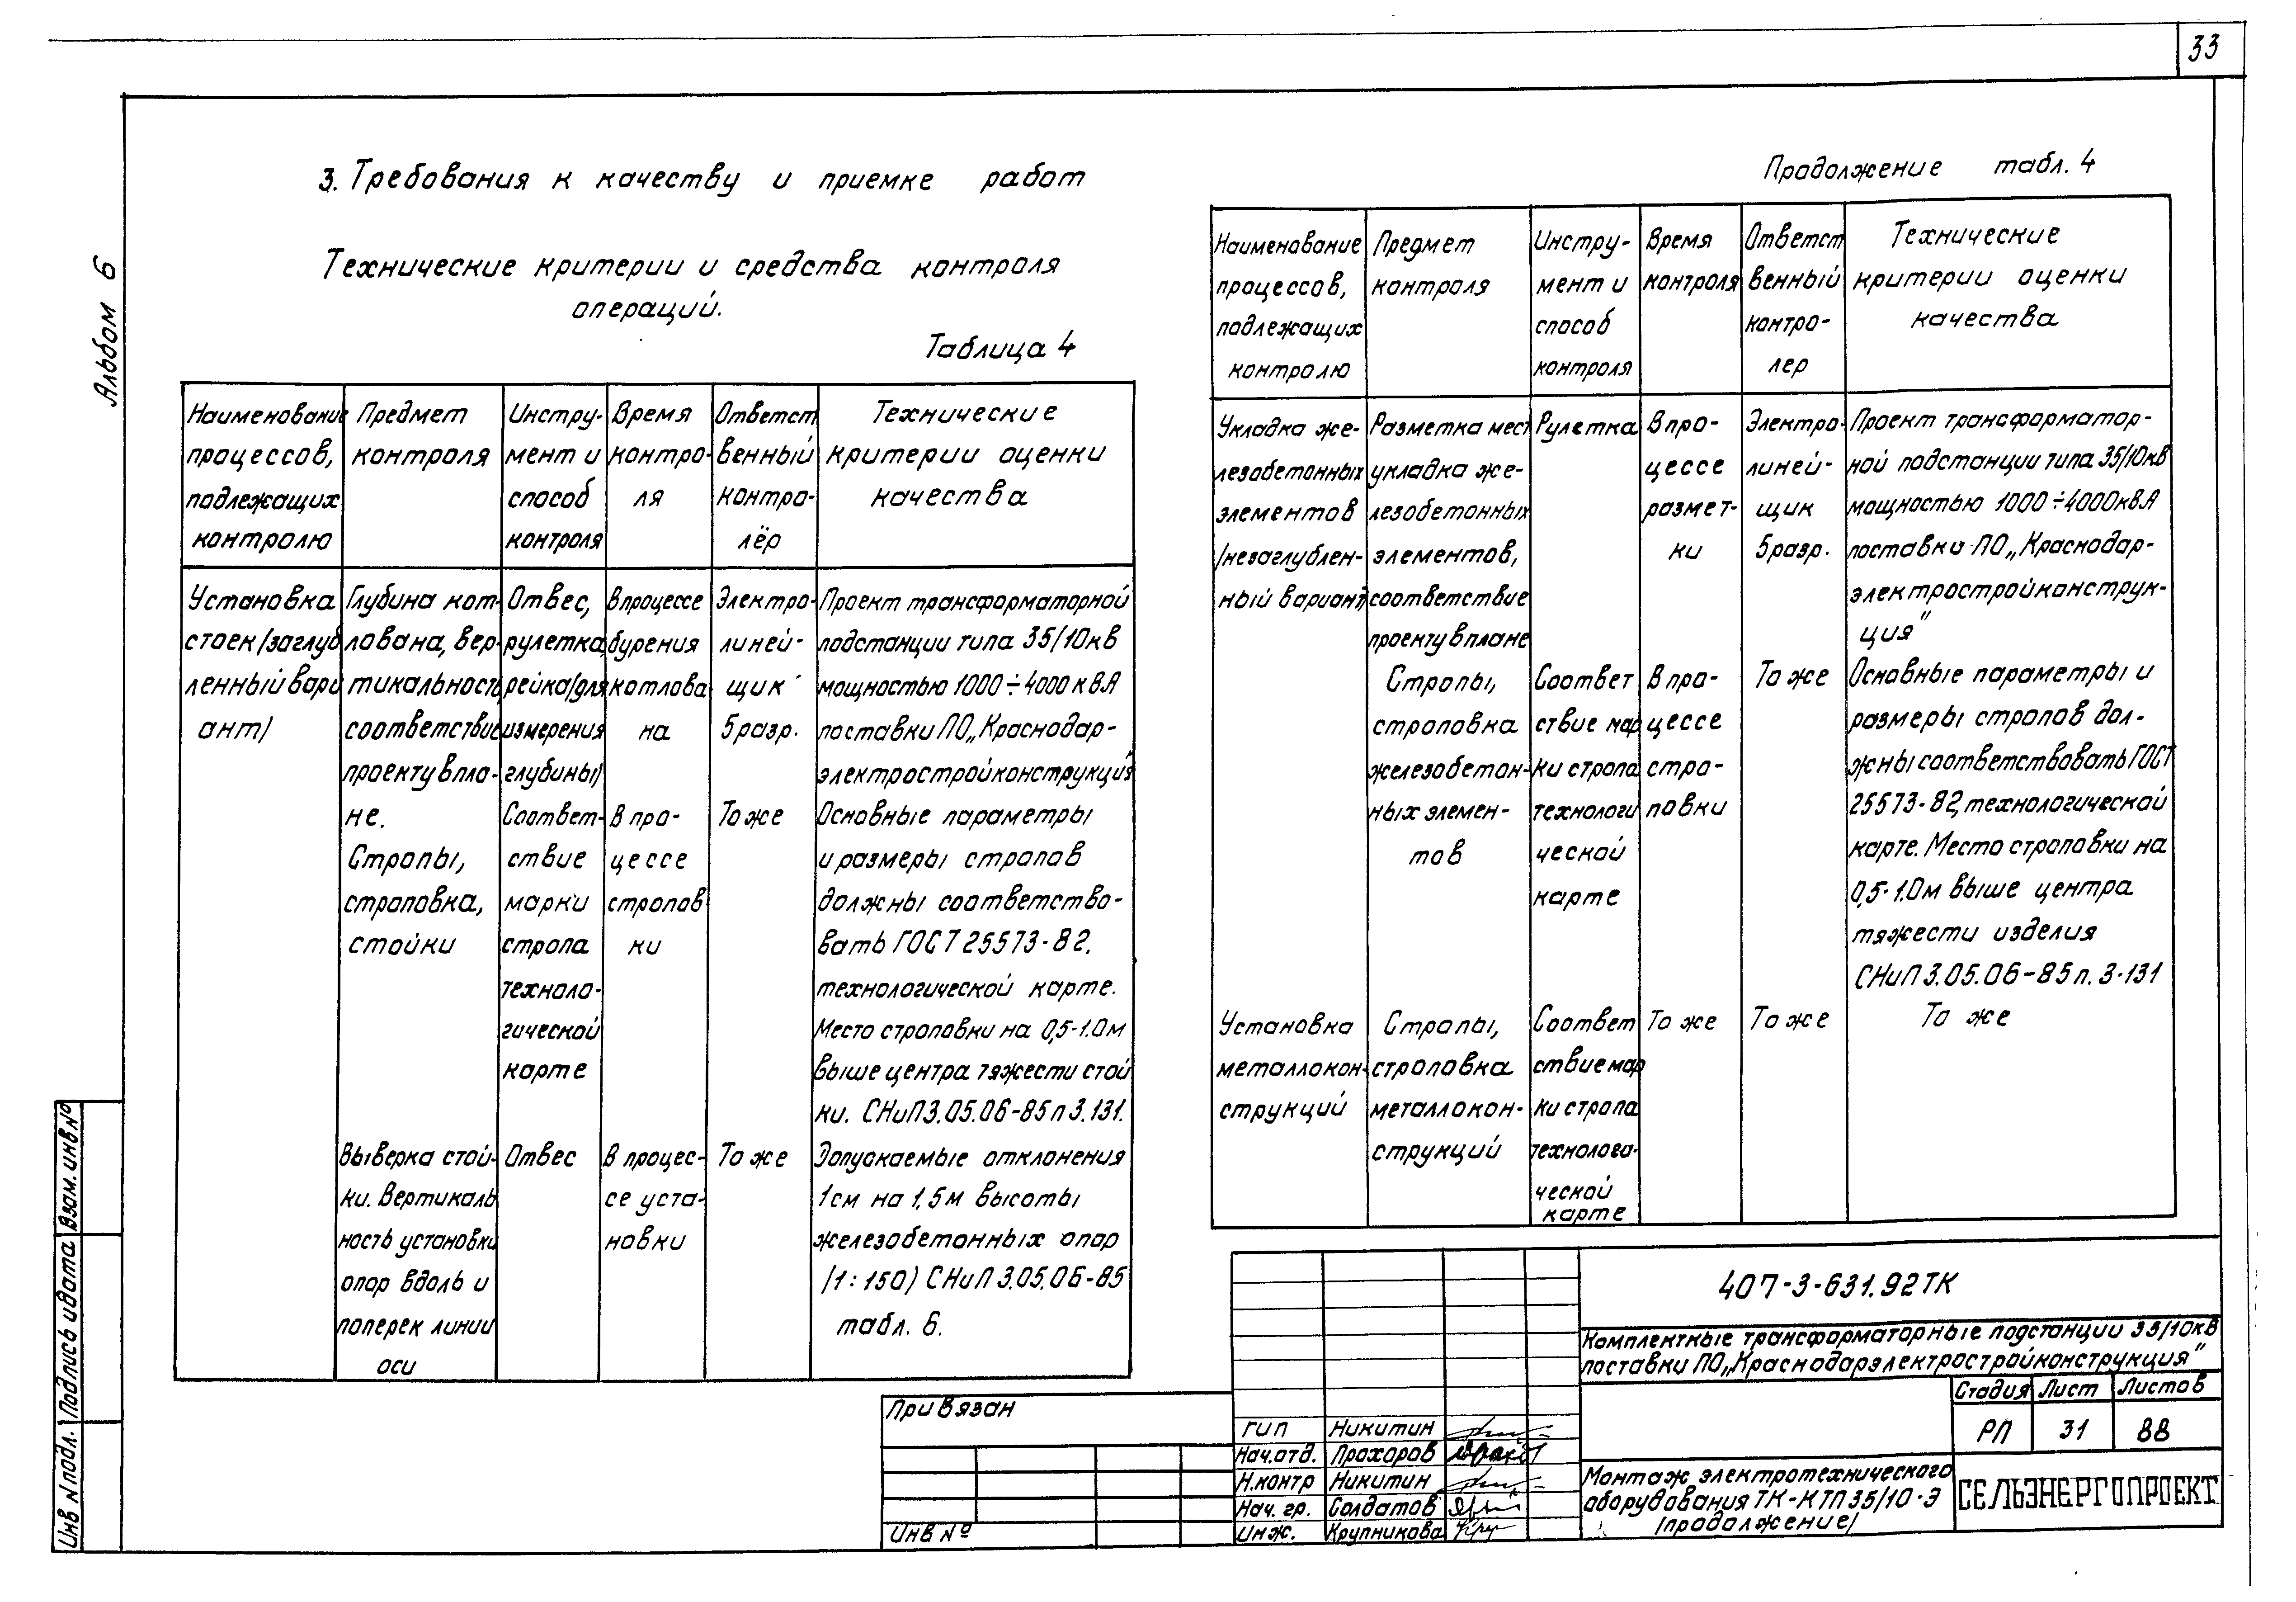 33
Альбом 6
3. Требования к качеству и приемке работ
Технические критерии и средства контроля
операций.
Таблица 4
Наименование процессов, подлежащих контролю
Предмет контроля
Инстру-мент и способ контроля
Время контро-ля
Ответст венный контро-лёр
Технические критерии оценки качества
Установка стоек /заглуб ленный вари ант/
Глубина кот-лована, вер-тикальность, соответствие проекту в пла-не.
Отвес, рулетка, рейка/для измерения глубины)
В процессе бурения котлова на
Электро-линей-щик 5 разр.
Проект трансформаторной
подстанции типа 35/10кв
мощностью 1000÷4000 кВА
поставки ПО „Краснодар-
электростройконструкция"
Стропы, строповка, стойки
Соответ-ствие марки стропа техноло-гической карте
В про-цессе стропов ки
То же
Основные параметры
и размеры стропов
должны соответство-
вать ГОСТ 25573-82.
технологической карте.
Место строповки на 0,5-1.0м
выше центра тяжести стой
ки. СНиП3.05.06-85 п 3.131.
Выверка стой-ки. Вертикаль ность установки опор вдоль и поперек линии оси
Отвес
В процес-се уста-новки
То же
Допускаемые отклонения
1см на 1,5м высоты
железобетонных опор
/1:150) СНиП 3.05.06-85
табл. 6.
Продолжение табл. 4
Наименование процессов, подлежащих контролю
Предмет контроля
Инстру-мент и способ контроля
Время контроля
Ответст венный контро-лер
Технические критерии оценки качества
Укладка же-лезобетонных элементов /незаглублен-ный вариант)
Разметка мест укладка же-лезобетонных элементов, соответствие проекту в плане
Рулетка
В про-цессе размет-ки
Электро-линей-щик 5 разр.
Проект трансформатор-
ной подстанции типа 35/10кв
мощностью 1000÷4000кВА
поставки ПО „Краснодар-
электростройконструк-
ция"
Стропы, строповка железобетон-ных элемен-тов
Соответ ствие мар ки стропа технологи ческой карте
В про-цессе стро-повки
То же
Основные параметры и
размеры стропов дол-
жны соответствовать ГОСТ
25573-82, технологической
карте. Место строповки на
0,5-1.0м выше центра
тяжести изделия
СНиП 3.05.06-85 п. 3.131
Установка металлокон-струкций
Стропы, строповка металлокон-струкций
Соответ ствие мар ки стропа технологи-ческой карте
То же
То же
То же
407-3-631.92ТК
Комплектные трансформаторные подстанции 35/10кв
поставки ПО „Краснодарэлектростройконструкция"
Стадия Лист Листов
РП 31 88
Монтаж электротехнического
оборудования ТК-КТП 35/10-Э
/продолжение/
СЕЛЬЭНЕРГОПРОЕКТ
ГИП Никитин
Нач.отд. Прохоров
Н.контр Никитин
Нач. гр. Солдатов
Инж. Крупникова
Привязан
Инв №
Инв N подл.
Подпись и дата
Взам. инв №